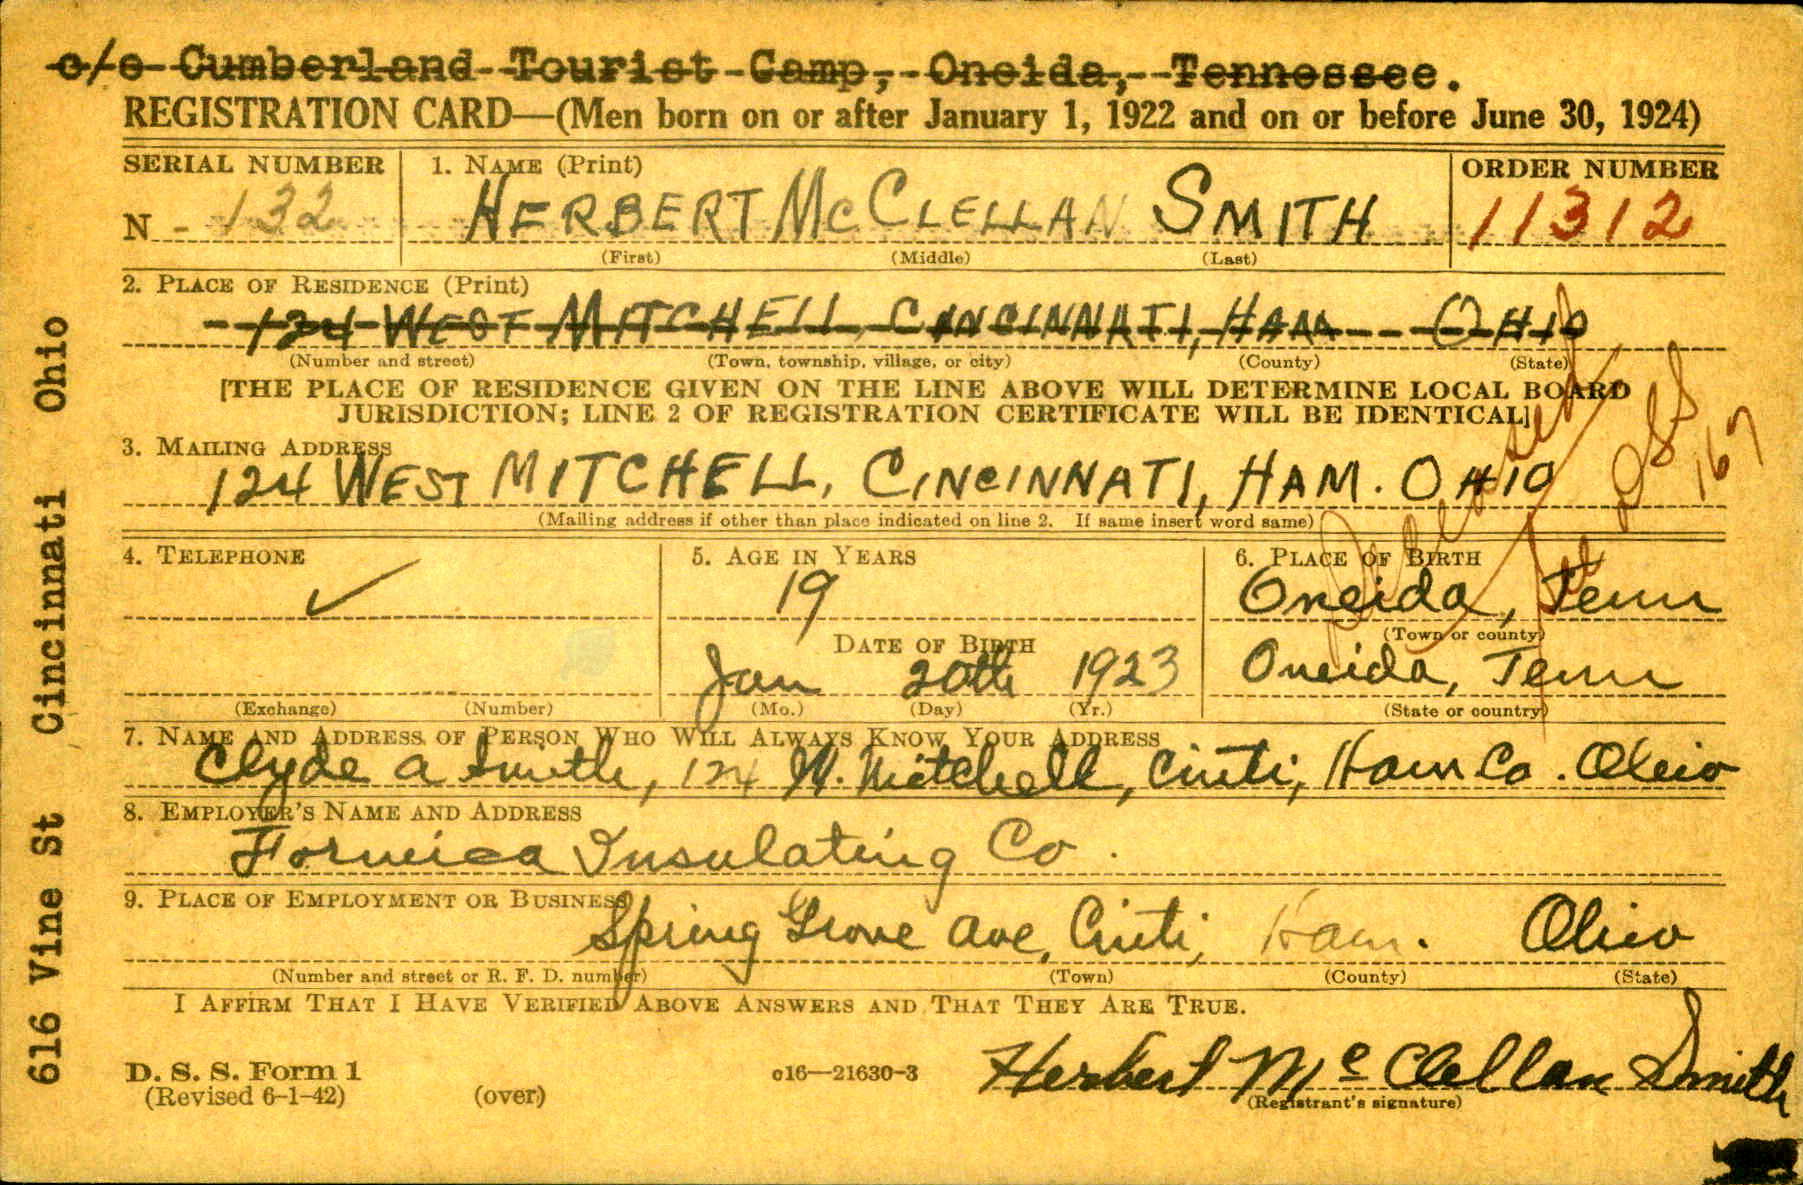 c/o Cumberland Tourist Camp, Oneida, Tennessee.
REGISTRATION CARD—(Men born on or after January 1, 1922 and on or before June 30, 1924)
SERIAL NUMBER 1. NAME (Print) ORDER NUMBER
N - 132 HERBERT MCCLELLAN SMITH 11312
(First) (Middle) (Last)
2. PLACE OF RESIDENCE (Print)
124 WEST MITCHELL, CINCINNATI, HAM OHIO
(Number and street) (Town, township, village, or city) (County) (State)
[THE PLACE OF RESIDENCE GIVEN ON THE LINE ABOVE WILL DETERMINE LOCAL BOARD
JURISDICTION; LINE 2 OF REGISTRATION CERTIFICATE WILL BE IDENTICAL]
3. MAILING ADDRESS
124 WEST MITCHELL, CINCINNATI, HAM. OHIO
(Mailing address if other than place indicated on line 2. If same insert word same)
Deceased
See DSS
167
4. TELEPHONE 5. AGE IN YEARS 6. PLACE OF BIRTH
✓ 19 Oneida, Tenn
(Town or county)
DATE OF BIRTH
Jan 20th 1923 Oneida, Tenn
(Exchange) (Number) (Mo.) (Day) (Yr.) (State or country)
7. NAME AND ADDRESS OF PERSON WHO WILL ALWAYS KNOW YOUR ADDRESS
Clyde A Smith, 124 W. Mitchell, Cinti, Ham Co. Ohio
8. EMPLOYER'S NAME AND ADDRESS
Formica Insulating Co.
9. PLACE OF EMPLOYMENT OR BUSINESS
Spring Grove Ave, Cinti, Ham. Ohio
(Number and street or R. F. D. number) (Town) (County) (State)
I AFFIRM THAT I HAVE VERIFIED ABOVE ANSWERS AND THAT THEY ARE TRUE.
D. S. S. Form 1 c16—21630-3 Herbert Mc Clellan Smith
(Revised 6-1-42) (over) (Registrant's signature)
616 Vine St Cincinnati Ohio